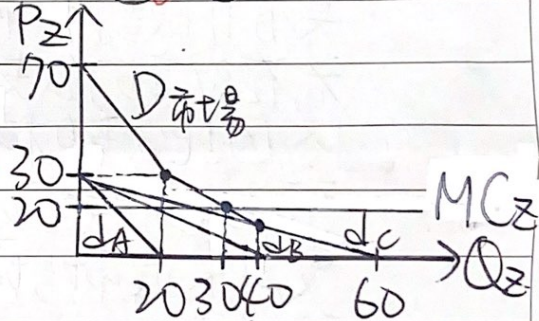 PZ
70
D市場
30
20
MCZ
dA
dB
dC
QZ
20 30 40 60